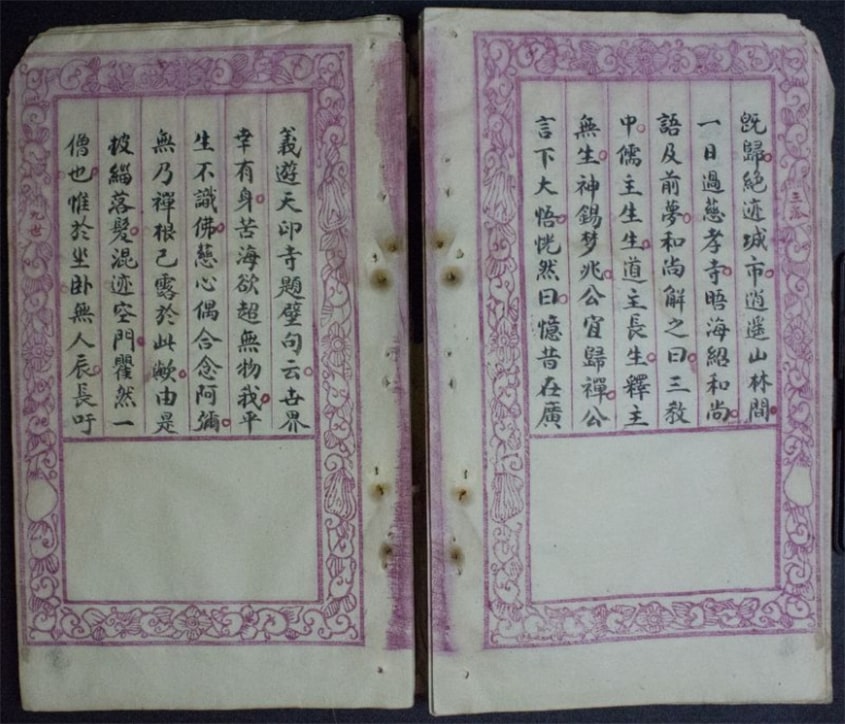 既歸絕迹城市逍遥山林間
一日過慈孝寺晤海紹和尚
語及前夢和尚解之曰三教
中儒主生生道主長生釋主
無生神錫梦兆公宜歸禪公
言下大悟恍然曰憶昔在廣
義遊天印寺題壁句云世界
幸有身苦海欲超無物我平
生不識佛慈心偶合念阿彌
無乃禪根已露於此歟由是
披緇落髮混迹空門瞿然一
僧也惟於坐卧無人辰長吁
九世